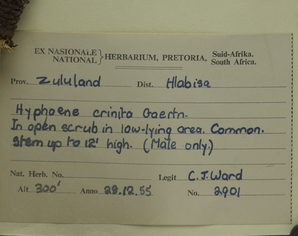 EX NASIONALE NATIONAL } HERBARIUM, PRETORIA, Suid-Afrika. South Africa.
Prov. Zululand Dist. Hlabisa
Hyphaene crinita Gaertn.
In open scrub in low-lying area. Common.
Stem up to 12' high. (Male only)
Nat. Herb. No. Legit C.J. Ward
Alt 300' Anno 28.12.55 No. 2901